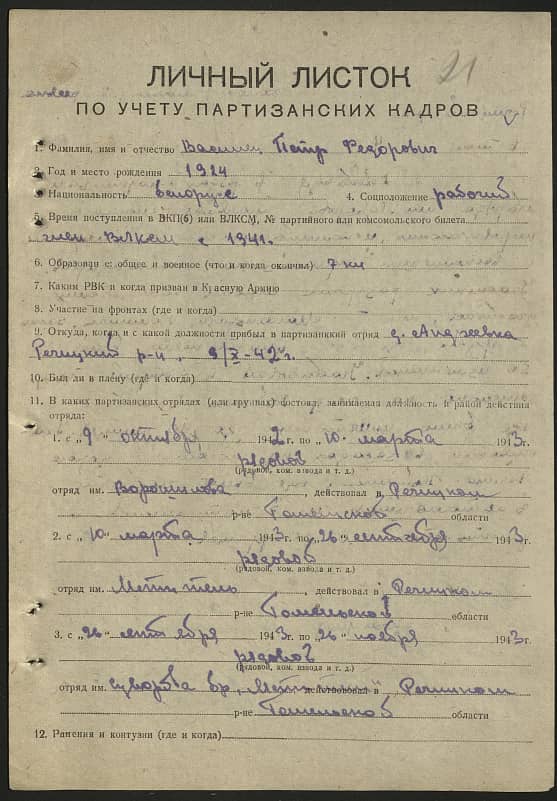 21
ЛИЧНЫЙ ЛИСТОК
ПО УЧЕТУ ПАРТИЗАНСКИХ КАДРОВ
1. Фамилия, имя и отчество Петр Федорович
2. Год и место рождения 1924
3. Национальность белорус 4. Соцположение рабочий
5. Время поступления в ВКП(б) или ВЛКСМ, № партийного или комсомольского билета
член ВЛКСМ с 1941.
6. Образование общее и военное (что и когда окончил) 7 кл
7. Каким РВК и когда призван в Красную Армию
8. Участие на фронтах (где и когда)
9. Откуда, когда и с какой должности прибыл в партизанский отряд д.
Речицкий р-н, 9/X-42 г.
10. Был ли в плену (где и когда)
11. В каких партизанских отрядах (или группах) состоял, занимаемая должность и район действия
отряда:
1. с „9" октября 1942 г. по „10" марта 1943 г.
рядовой
(рядовой, ком. взвода и т. д.)
отряд им. Ворошилова, действовал в Речицком
р-не Гомельской области
2. с „10" марта 1943 г. по „26" сентября 1943 г.
рядовой
(рядовой, ком. взвода и т. д.)
отряд им. действовал в Речицком
р-не Гомельской области
3. с „26" сентября 1943 г. по „26" ноября 1943 г.
рядовой
(рядовой, ком. взвода и т. д.)
отряд им. Суворова бр. действовал в Речицком
р-не Гомельской области
12. Ранения и контузии (где и когда)